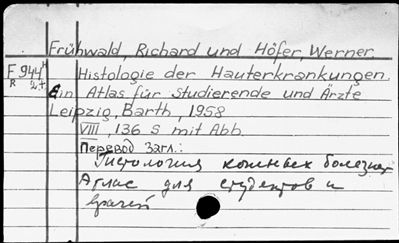 Frühwald, Richard und Höfer, Werner.
F 944 H Histologie der Hauterkrankungen.
R Ein Atlas für Studierende und Ärzte
Leipzig, Barth, 1958
VIII, 136 S mit Abb.
Перевод Загл.:
Гистология кожных болезней
Атлас для студентов и
врачей